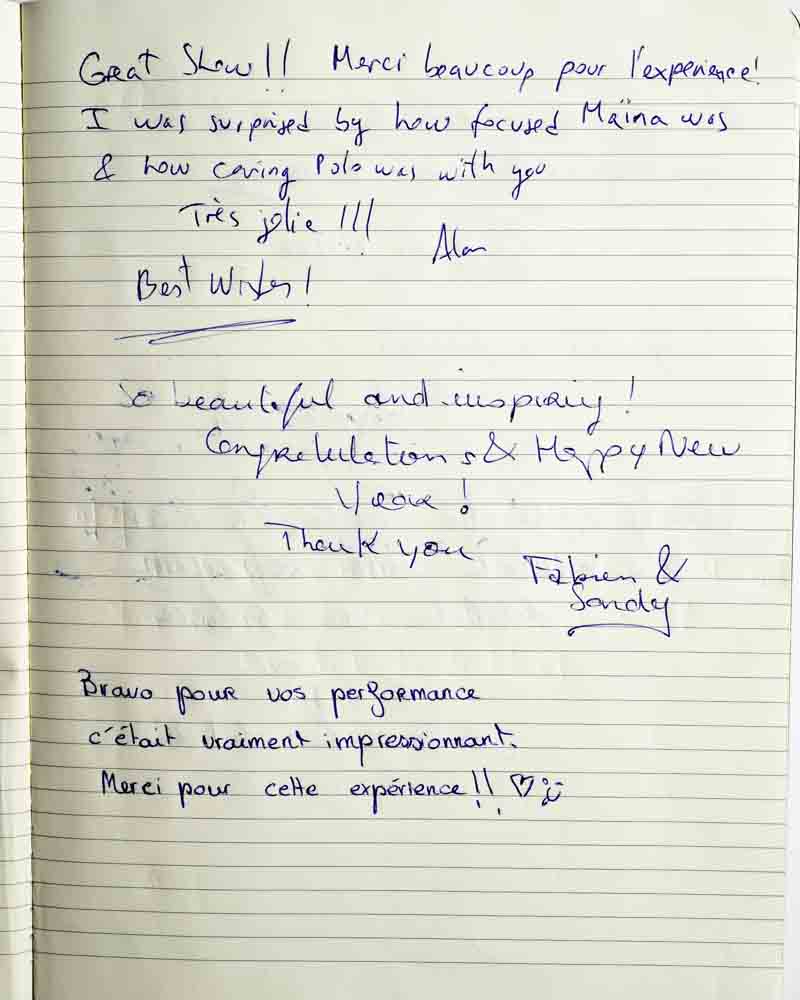 Great Show!! Merci beaucoup pour l'experience!
I was surprised by how focused Maïna was
& how caring Polo was with you
Très jolie !!!
Alan
Best Wishes!
So beautiful and inspiring!
Congratulations & Happy New
Year!
Thank you
Fabien &
Sandy
Bravo pour vos performance
c'était vraiment impressionnant.
Merci pour cette expérience!! ♡